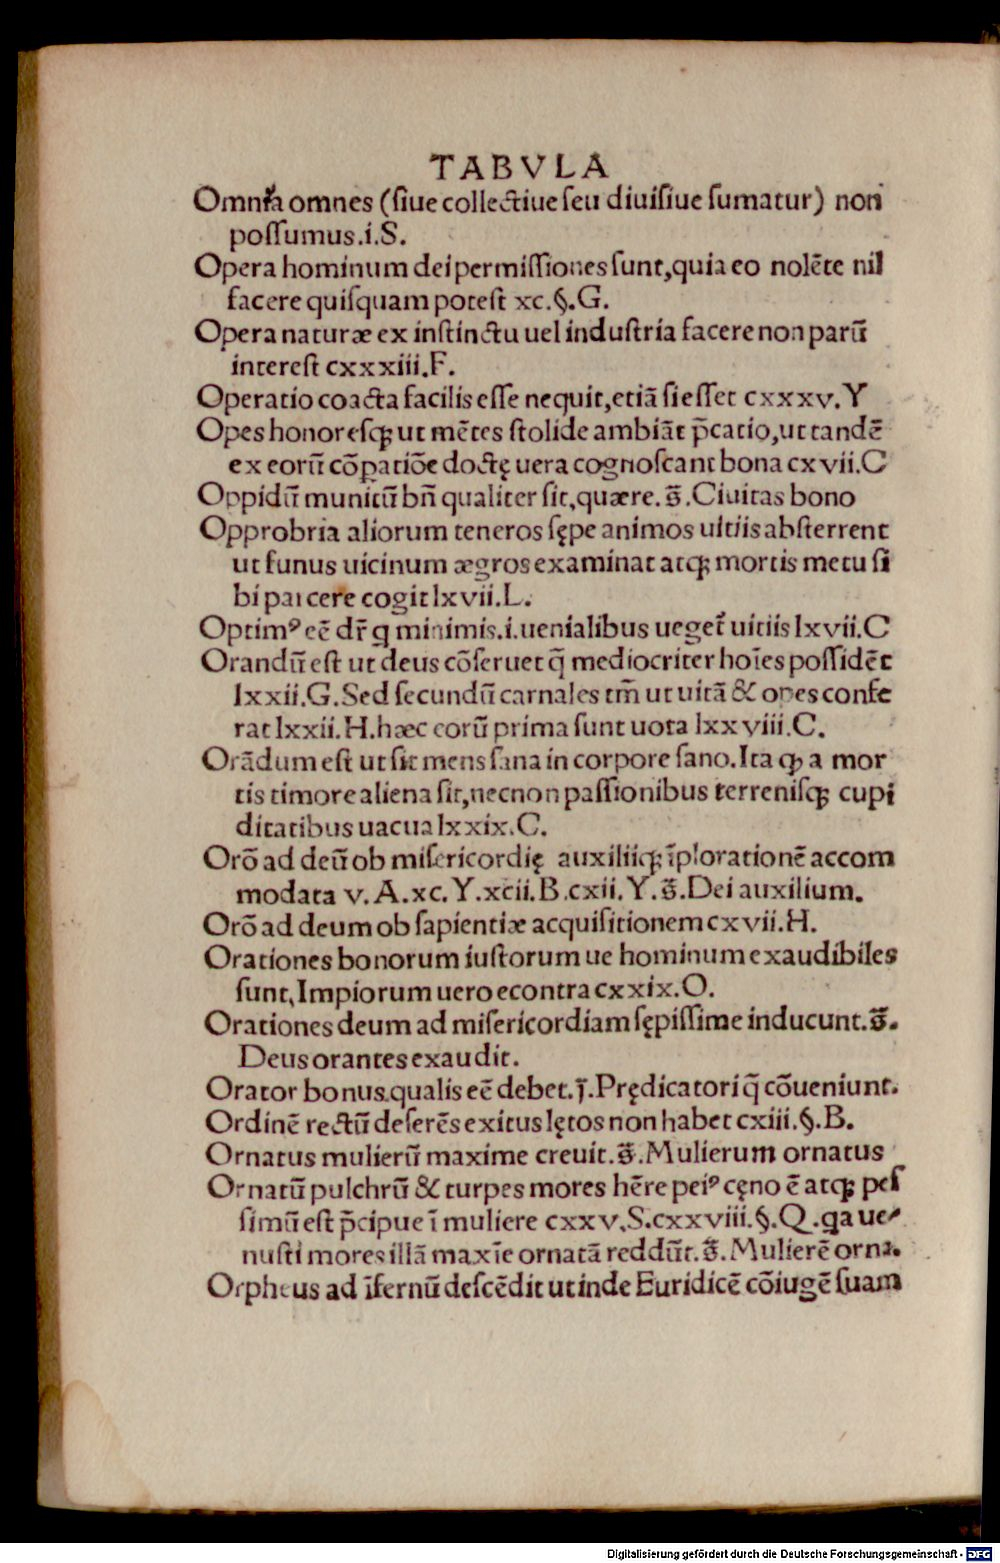 TABVLA
Omnia omnes (ſiue collectiue ſeu diuiſiue ſumatur) non
poſſumus.i.S.
Opera hominum dei permiſſiones ſunt,quia eo nolēte nil
facere quiſquam poteſt xc.§.G.
Opera naturæ ex inſtinctu uel induſtria facere non parū
intereſt cxxxiii.F.
Operatio coacta facilis eſſe nequit,etiā ſi eſſet cxxxv.Y
Opes honoreſqꝫ ut mētes ſtolide ambiāt p̄catio,ut tandē
ex eorū cōꝑatiōe doctę uera cognoſcant bona cxvii.C
Oppidū munitū bñ qualiter ſit,quære.s̄.Ciuitas bono
Opprobria aliorum teneros ſępe animos uitiis abſterrent
ut funus uicinum ægros examinat atqꝫ mortis metu ſi
bi parcere cogit lxvii.L.
Optimꝰ eē dr̄ q minimis.i.uenialibus uegeť uitiis lxvii.C
Orandū eſt ut deus cōſeruet q̄ mediocriter hoīes poſſidēt
lxxii.G.Sed ſecundū carnales tm̄ ut uitā & opes confe
rat lxxii.H.hæc eorū prima ſunt uota lxxviii.C.
Orādum eſt ut ſit mens ſana in corpore ſano.Ita qꝫ a mor
tis timore aliena ſit,necnon paſſionibus terreniſqꝫ cupi
ditatibus uacua lxxix.C.
Orō ad deū ob miſericordię auxiliiqꝫ īplorationē accom
modata v.A.xc.Y.xcii.B.cxii.Y.s̄.Dei auxilium.
Orō ad deum ob ſapientiæ acquiſitionem cxvii.H.
Orationes bonorum iuſtorum ue hominum exaudibiles
ſunt,Impiorum uero econtra cxxix.O.
Orationes deum ad miſericordiam ſępiſſime inducunt.s̄.
Deus orantes exaudit.
Orator bonus.qualis eē debet.j̄.Prędicatori q̄ cōueniunt.
Ordinē rectū deſerēs exitus lętos non habet cxiii.§.B.
Ornatus mulierū maxime creuit.s̄.Mulierum ornatus
Ornatū pulchrū & turpes mores hēre peiꝰ cęno ē atqꝫ peſ
ſimū eſt p̄cipue ī muliere cxxv.S.cxxviii.§.Q.qa ue
nuſti mores illā maxīe ornatā reddūt.s̄.Mulierē orna.
Orpheus ad īfernū deſcēdit ut inde Euridicē cōiugē ſuam
Digitalisierung gefördert durch die Deutsche Forschungsgemeinschaft - DFG